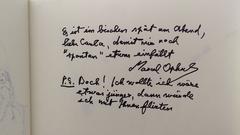 Es ist ein bisschen spät am Abend,
liebe Carla, damit mir noch
"spontan" etwas einfällt
Marcel Ophuls
P.S. Doch! Ich wollte, ich wäre
etwas jünger, dann würde
ich mit Ihnen flirten